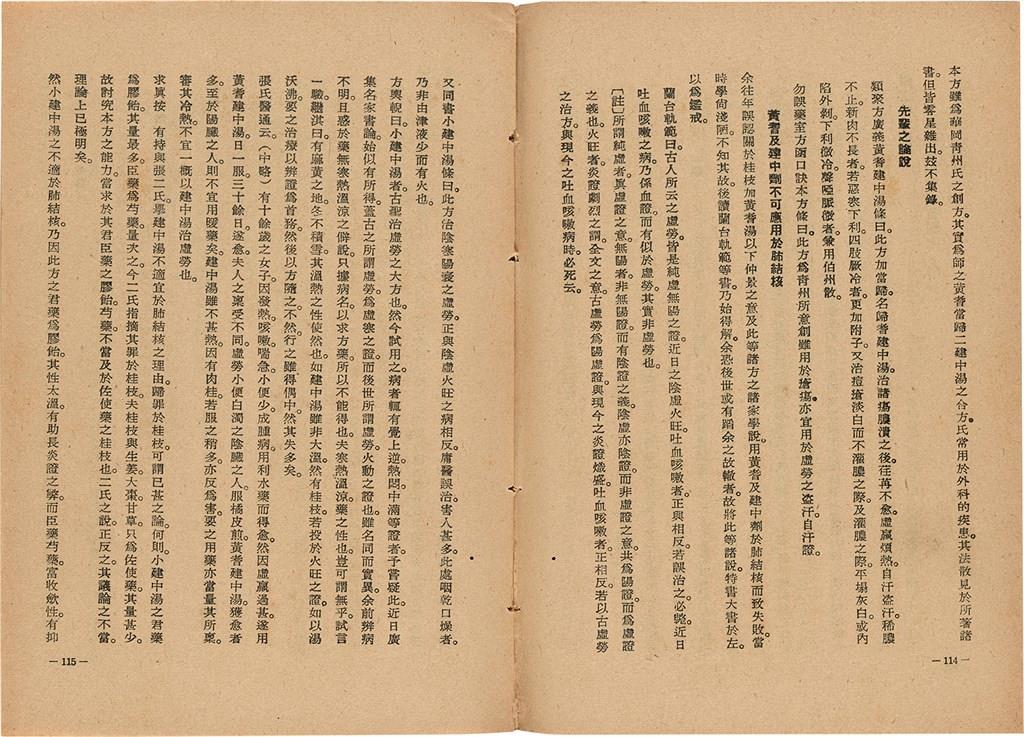 本方雖爲華岡靑州氏之創方。其實爲師之黃耆當歸二建中湯之合方。氏常用於外科的疾患。其法散見於所著諸
書。但皆零星雜出。玆不集錄。
先輩之論說
類聚方廣義黃耆建中湯條曰。此方加當歸。名歸耆建中湯。治諸瘍膿潰之後。荏苒不愈。虛羸煩熱。自汗盜汗。稀膿
不止。新肉不長者。若惡寒下利。四肢厥冷者。更加附子。又治痘瘡淡白而不灌膿之際。及灌膿之際。平塌灰白。或內
陷外剝。下利微冷。聲啞脈微者。兼用伯州散。
勿誤藥室方函口訣本方條曰。此方爲靑州所意創。雖用於瘡瘍。亦宜用於虛勞之盜汗自汗證。
黃耆及建中劑不可應用於肺結核
余往年誤認關於桂枝加黃耆湯以下仲景之意。及此等諸方之諸家學說。用黃耆及建中劑於肺結核而致失敗。當
時學尙淺陋。不知其故。後讀蘭台軌範等書。乃始得解。余恐後世或有蹈余之故轍者。故將此等諸說。特書大書於左。
以爲鑑戒。
蘭台軌範曰。古人所云之虛勞。皆是純虛無陽之證。近日之陰虛火旺。吐血咳嗽者。正與相反。若誤治之。必斃。近日
吐血咳嗽之病。乃係血證。而有似於虛勞。其實非虛勞也。
〔註〕所謂純虛者。眞虛證之意。無陽者。非無陽證。而有陰證之義。陰虛亦陰證而非虛證之意。共爲陽證而爲虛證
之義也。火旺者。炎證劇烈之謂。全文之意。古虛勞爲陽虛證。與現今之炎證熾盛。吐血咳嗽者。正相反。若以古虛勞
之治方。與現今之吐血咳嗽病時。必死云。
— 114 —
又同書小建中湯條曰。此方治陰寒陽衰之虛勞。正與陰虛火旺之病相反。庸醫誤治。害人甚多。此處咽乾口燥者。
乃非由津液少而有火也。
方輿輗曰。小建中湯者。古聖治虛勞之大方也。然今試用之。病者輒有覺上逆熱悶中滿等證者。予嘗疑此。近日廣
集名家書論。始似有所得。蓋古之所謂虛勞。爲虛寒之證。而後世所謂虛勞。火動之證也。雖名同而實異。余前辨病
不明。且惑於藥無寒熱溫涼之僻說。只據病名以求方藥。所以不能得也。夫寒熱溫涼。藥之性也。豈可謂無乎。試言
一驗。驪淇曰。有麻黃之地。冬不積雪。其溫熱之性使然也。如建中湯雖非大溫。然有桂枝。若投於火旺之證。如以湯
沃沸。要之治療以辨證爲首務。然後以方隨之。不然。行之雖得偶中。然其失多矣。
張氏醫通云。（中略）有十餘歲之女子。因發熱咳嗽喘急。小便少。成腫病。用利水藥而得愈。然因虛羸過甚。遂用
黃耆建中湯。日一服。三十餘日遂愈。夫人之稟受不同。虛勞小便白濁之陰臟之人。服橘皮煎。黃耆建中湯。獲愈者
多。至於陽臟之人。則不宜用暖藥矣。建中湯雖不甚熱。因有肉桂。若服之稍多。亦反爲害。要之用藥亦當量其所稟。
審其冷熱。不宜一概以建中湯治虛勞也。
求眞按 有持與張二氏。舉建中湯不適宜於肺結核之理由。歸罪於桂枝。可謂已甚之論。何則。小建中湯之君藥
爲膠飴。其量最多。臣藥爲芍藥。量次之。今二氏指摘其罪於桂枝。夫桂枝與生姜大棗甘草。只爲佐使藥。其量甚少。
故討究本方之能力。當求於其君臣藥之膠飴芍藥。不當及於佐使藥之桂枝也。二氏之說。正反之。其議論之不當。
理論上已極明矣。
然小建中湯之不適於肺結核。乃因此方之君藥爲膠飴。其性太溫。有助長炎證之弊。而臣藥芍藥。富收斂性。有抑
— 115 —